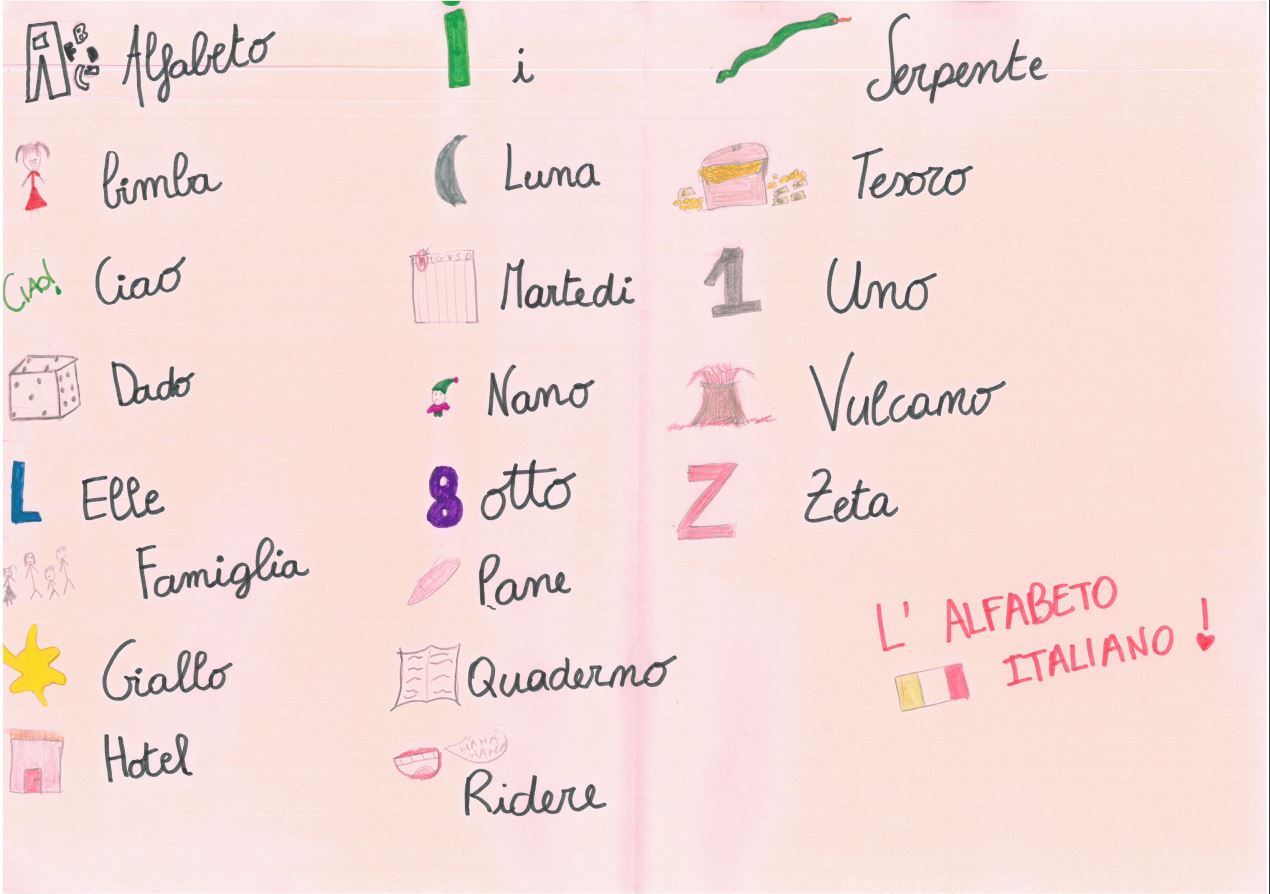 Alfabeto
bimba
CIAO! Ciao
Dado
L Elle
Famiglia
Giallo
Hotel
i i
Luna
Martedi
Nano
8 otto
Pane
Quaderno
HAHA
HAHA
Ridere
Serpente
Tesoro
1 Uno
Vulcano
Z Zeta
L' ALFABETO
ITALIANO!